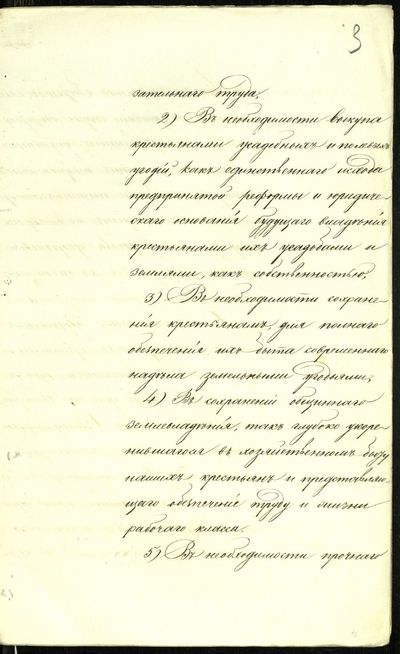 3
зательнаго труда;
2) Въ необходимости выкупа
крестьянами усадебныхъ и полевыхъ
угодій, какъ единственнаго исхода
предпринятой реформы и юридиче-
скаго основанія будущаго владѣнія
крестьянами ихъ усадьбами и
землями, какъ собственностью;
3) Въ необходимости сохране-
нія крестьянамъ, для полнаго
обезпеченія ихъ быта современнаго
надѣла земельными угодьями;
4) Въ сохраненіи общиннаго
землевладѣнія, такъ глубоко укоре-
нившагося въ хозяйственномъ быту
нашихъ крестьянъ и представляю-
щаго обезпеченіе труду и жизни
рабочаго класса.
5) Въ необходимости прочнаго